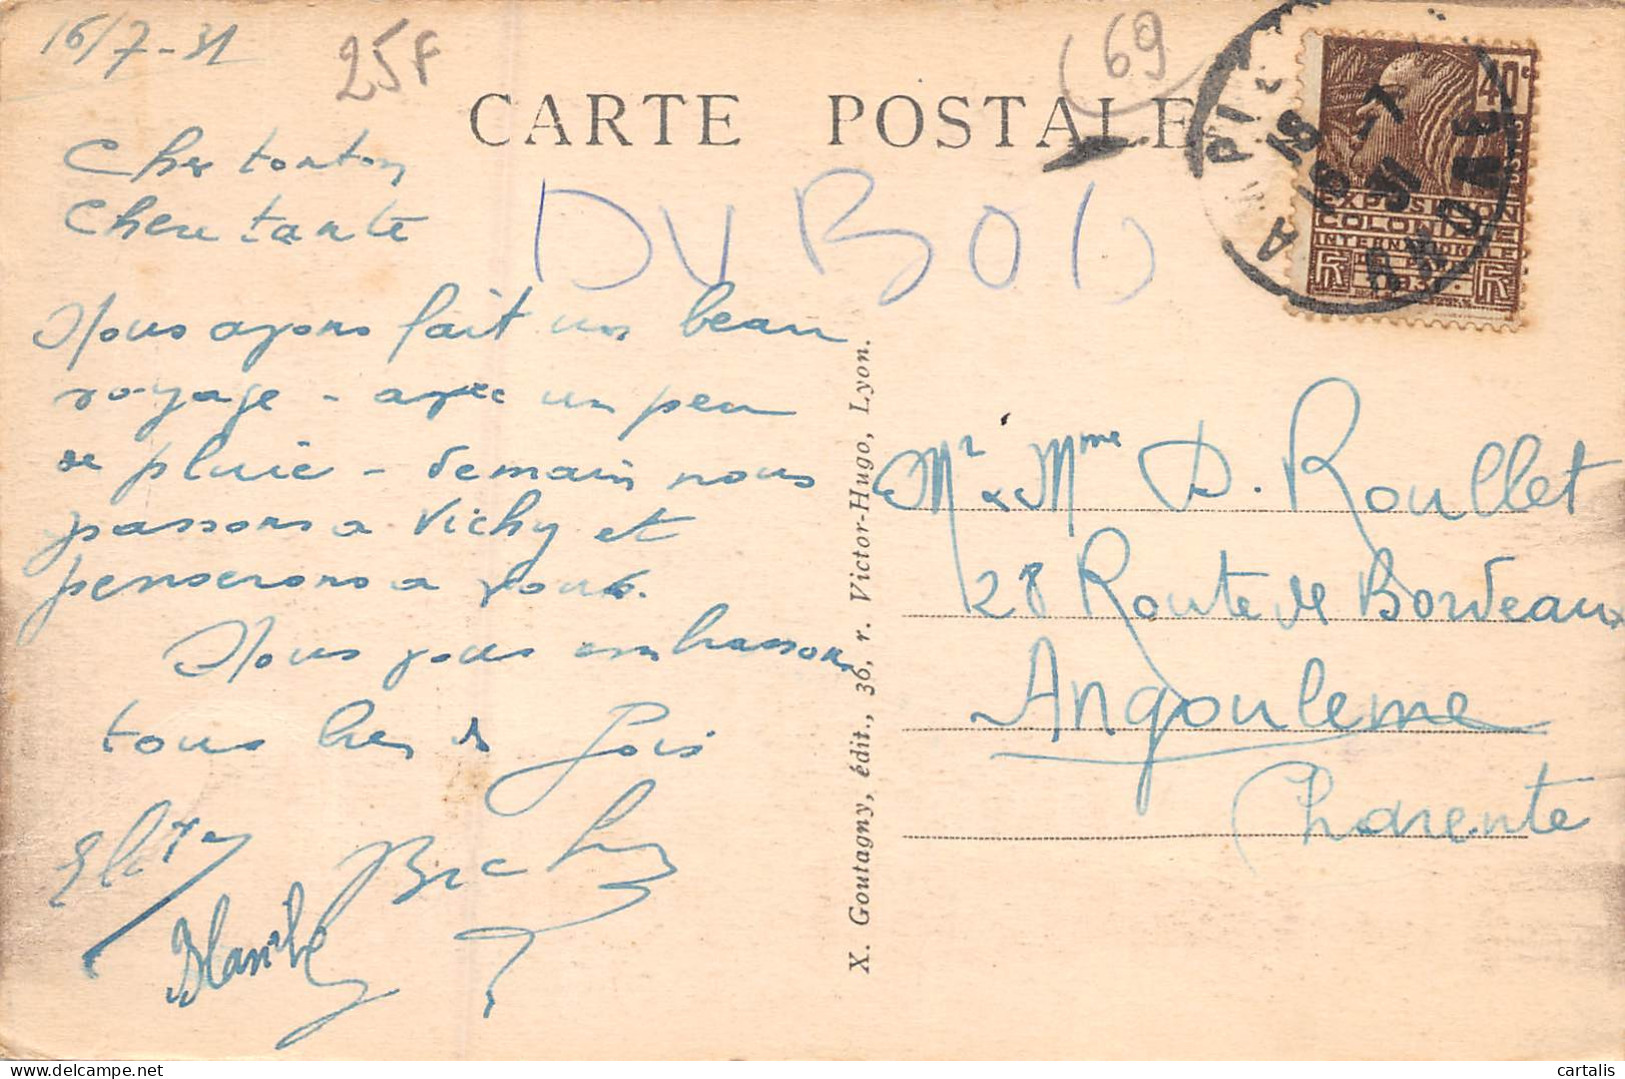 16/7-31
25F
69
CARTE POSTALE
DUBOIS
40c
POSTES
EXPOSITION
COLONIALE
INTERNATIONALE
RF RF
Cher tonton
Chere tante
Nous avons fait un beau
voyage - avec un peu
de pluie - demain nous
passons a Vichy et
penserons a vous.
Nous vous embrassons
tous les
Blanche
X. Goutagny, édit., 36, r. Victor-Hugo, Lyon.
Mr & Mme D. Roullet
28 Route de Bordeaux
Angouleme
Charente
cartalis